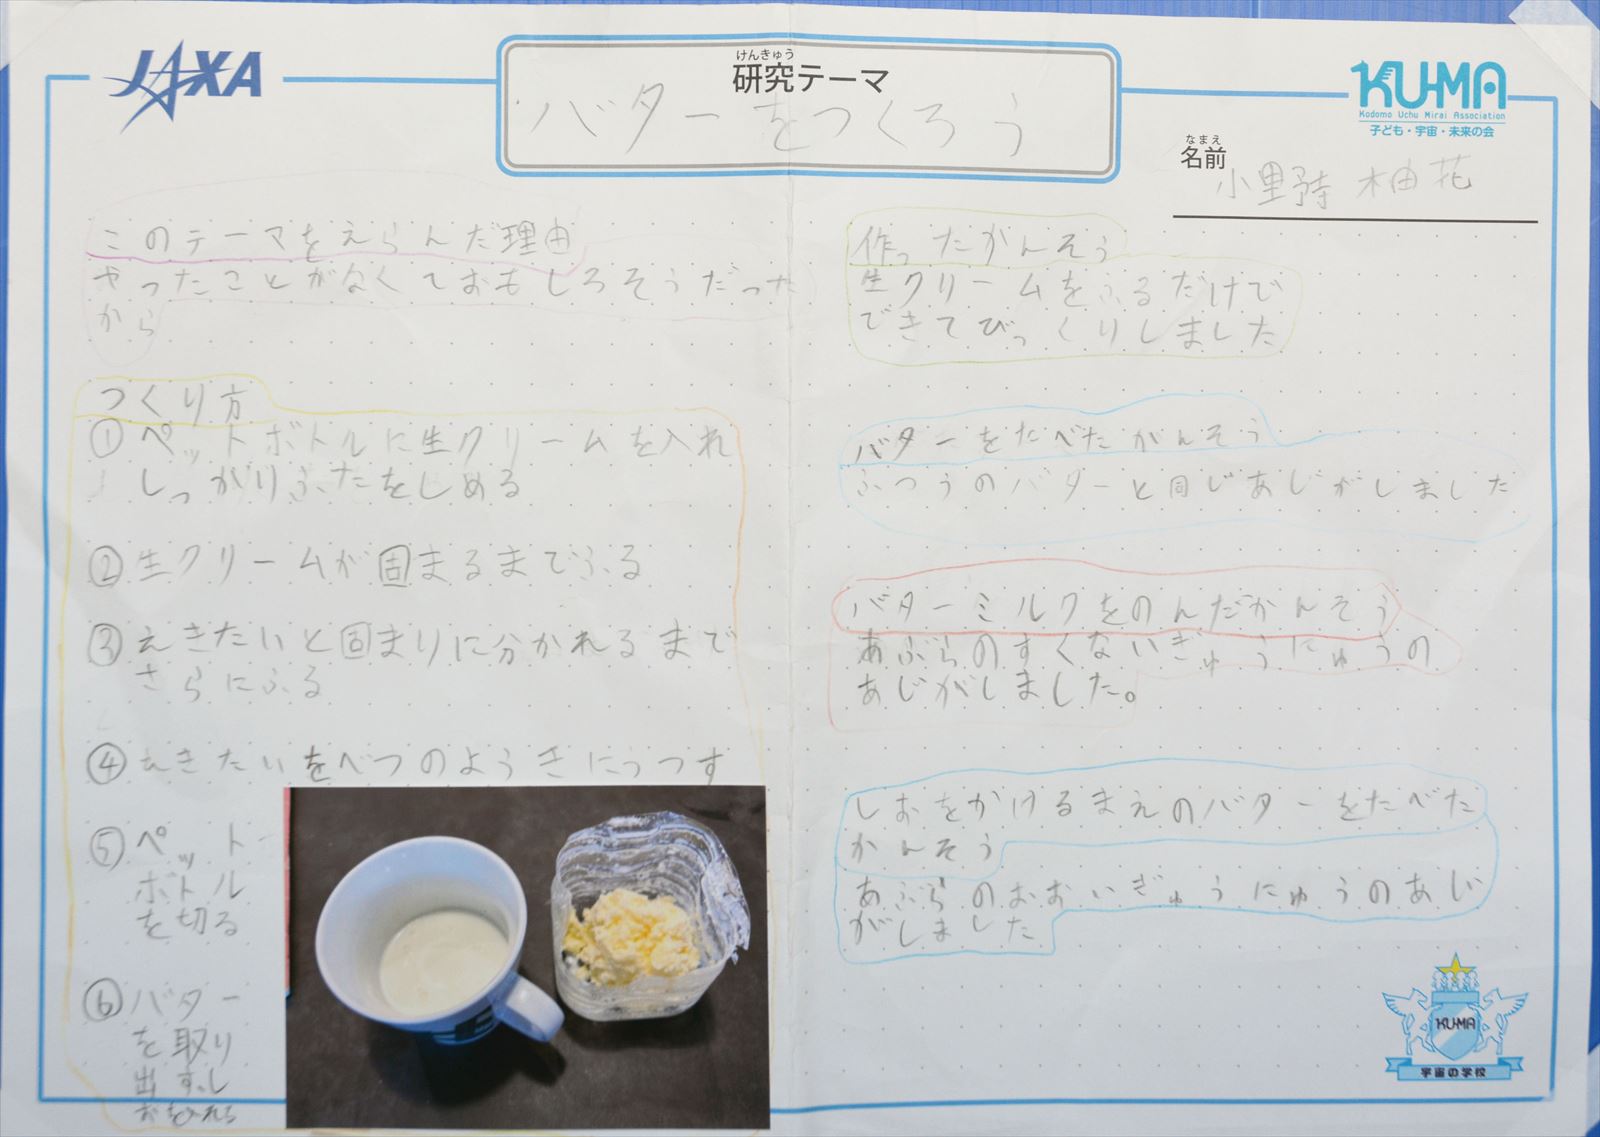 JAXA
けんきゅう
研究テーマ
バターをつくろう
KU-MA
Kodomo Uchu Mirai Association
子ども・宇宙・未来の会
なまえ
名前
小野寺 柚花
このテーマをえらんだ理由
やったことがなくておもしろそうだった
から
つくり方
① ペットボトルに生クリームを入れ
しっかりふたをしめる
② 生クリームが固まるまでふる
③ えきたいと固まりに分かれるまで
さらにふる
④ えきたいをべつのようきにうつす
⑤ ペット
ボトル
を切る
⑥ バター
を取り
出す。し
おを入れる
作ったかんそう
生クリームをふるだけで
できてびっくりしました
バターをたべたかんそう
ふつうのバターと同じあじがしました
バターミルクをのんだかんそう
あぶらのすくないぎゅうにゅうの
あじがしました。
しおをかけるまえのバターをたべた
かんそう
あぶらのおおいぎゅうにゅうのあじ
がしました
KU-MA
宇宙の学校